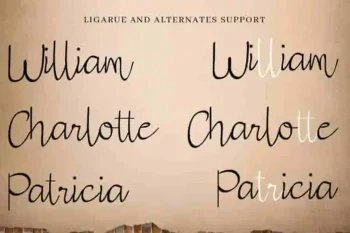 LIGARUE AND ALTERNATES SUPPORT
William William
Charlotte Charlotte
Patricia Patricia